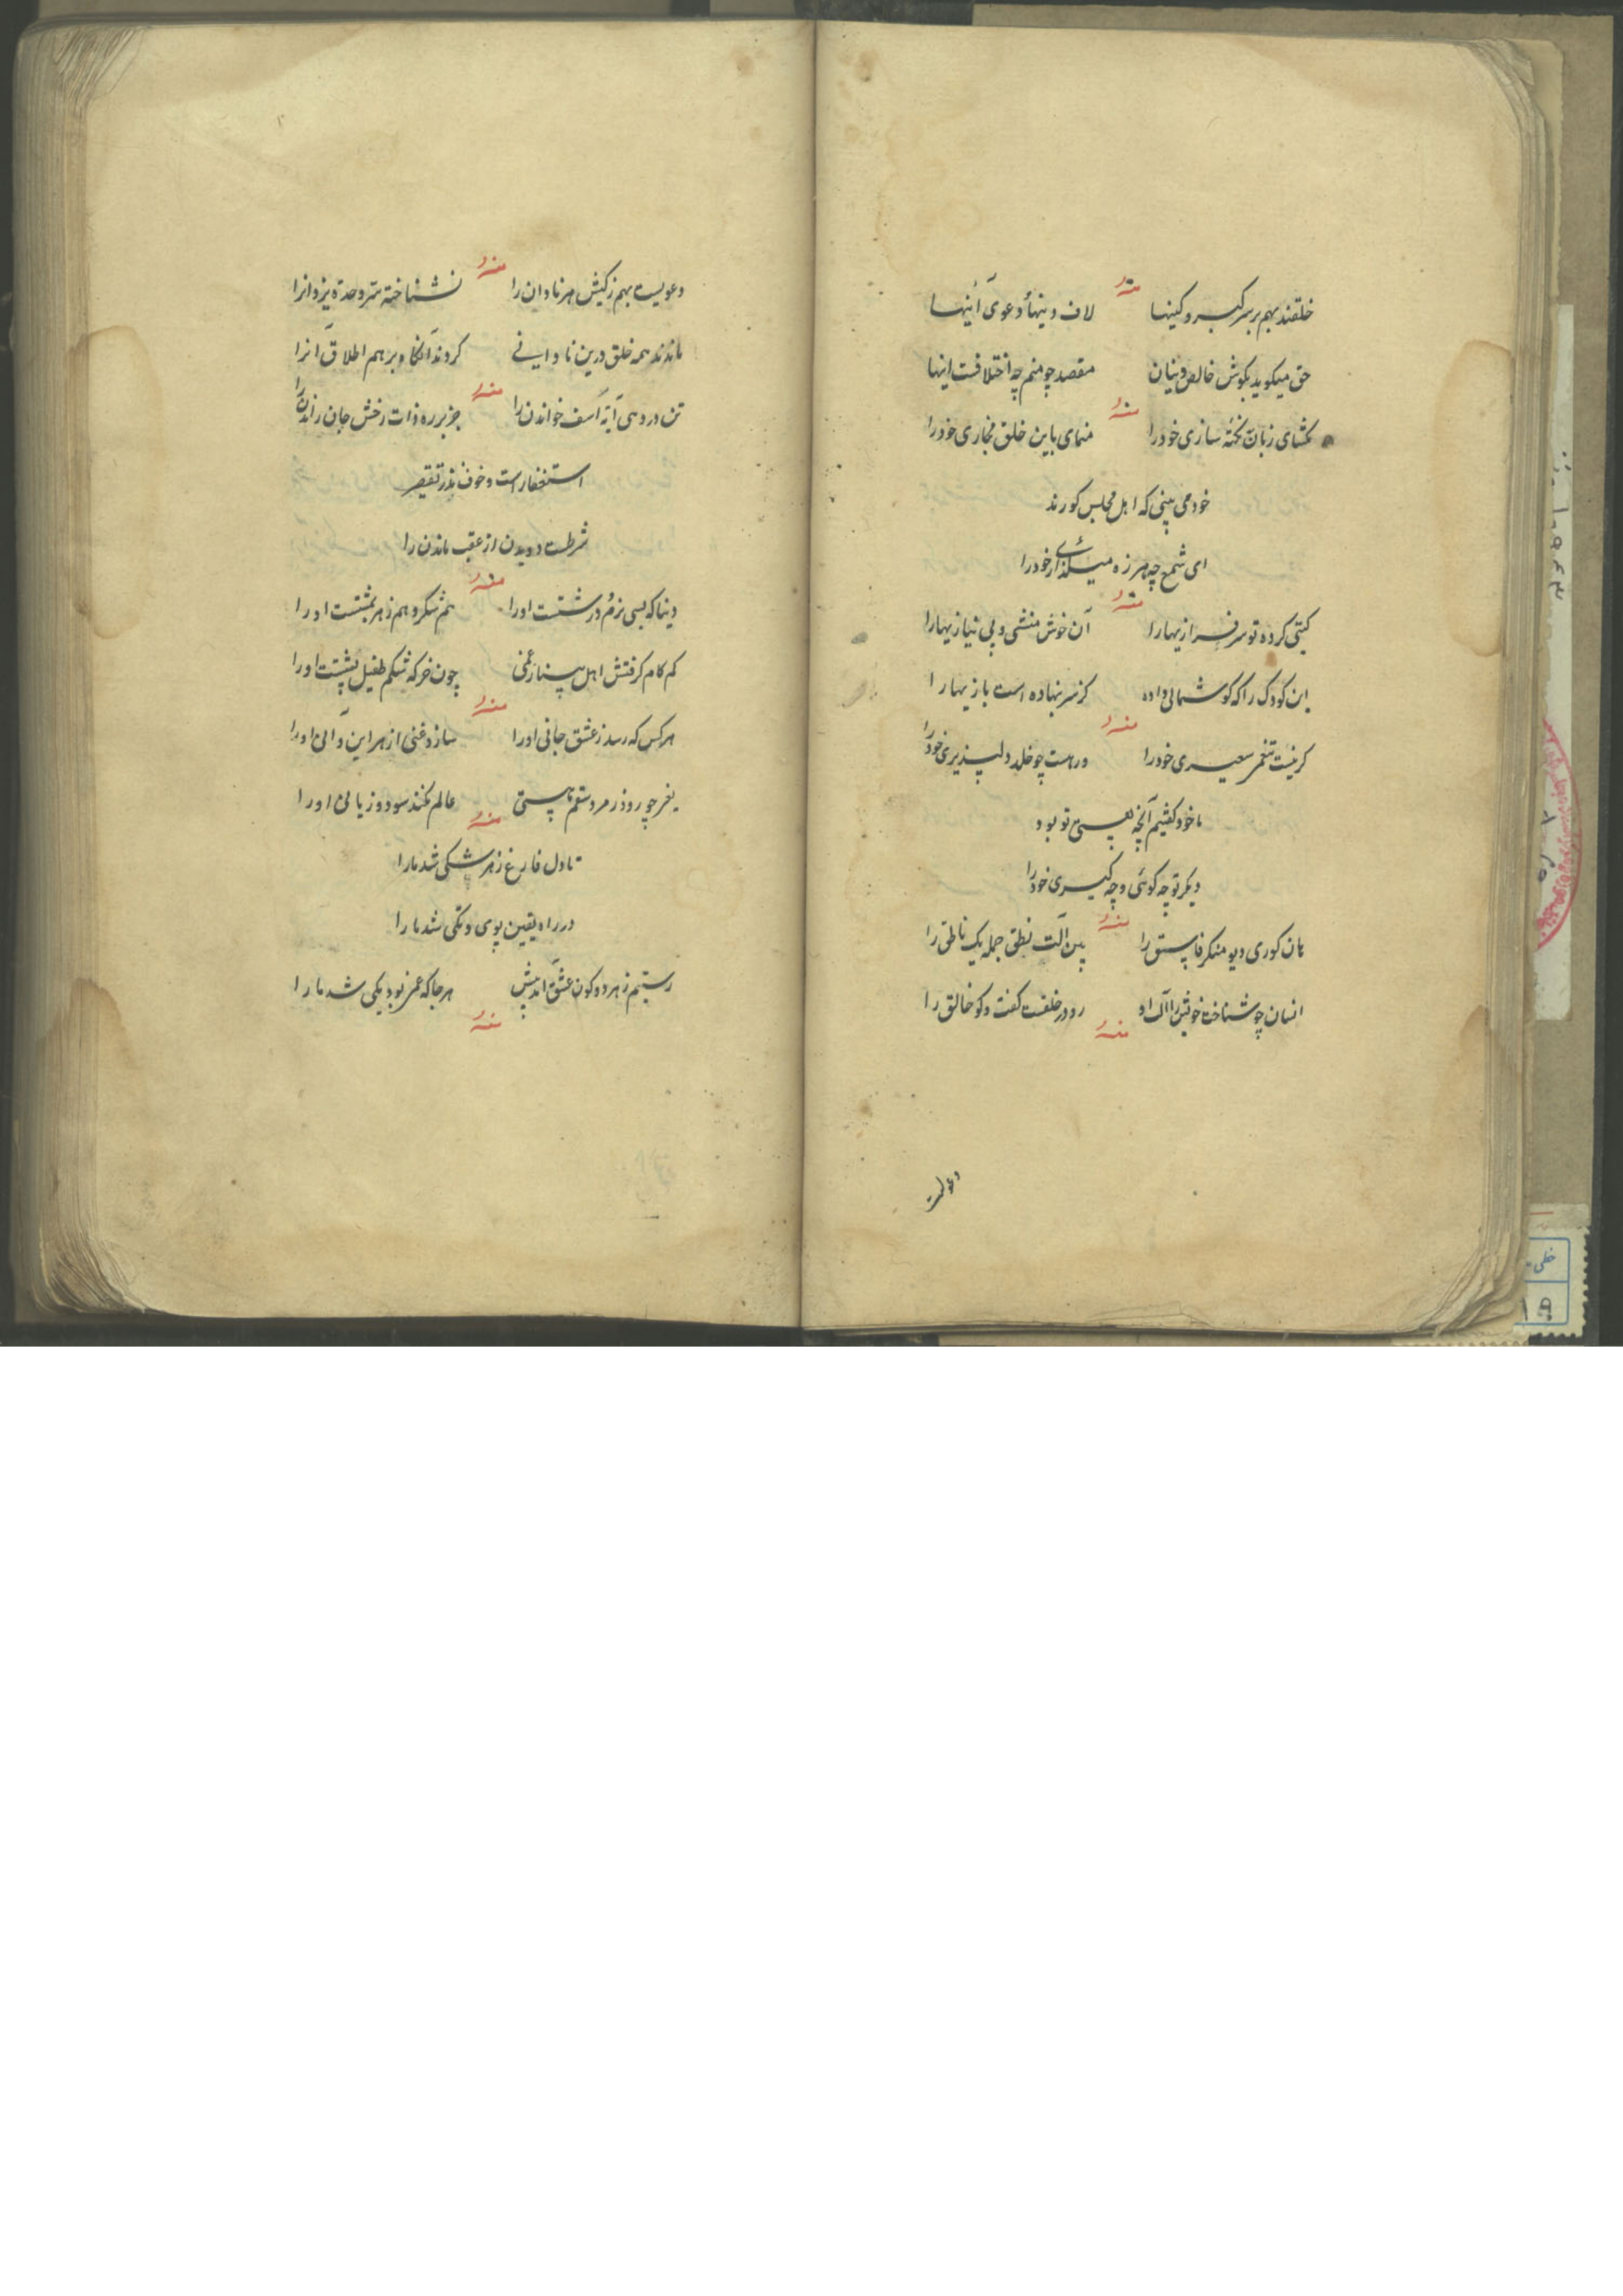 منه
خلقند بهم بر سر کبر و کینها لاف دینها و دعوی آئینها
حق میگوید بگوش خالص دینان مقصد چو منم چه اختلافست اینها
منه
نگشای زبان نکته سازی خود را منمای باین خلق مجازی خود را
خود می بینی که اهل مجلس کورند
ای شمع چه هرزه میگدازی خود را
منه
گیتی کرده تو سرفرازیها را آن خوش منشی و بی نیازیها را
این کودک را که گوشمالی داده کز سر نهاده است بازیها را
منه
گر نیست سعیری خود را ور هست چو خلد دلپذیری خود را
ما خود گفتیم آنچه تو بود
دیگر تو چه گوئی و چه گیری خود را
منه
هان کوری دیو منکر فاسق را بین آلت نطق جمله یک ناطق را
انسان چو شناخت خویش را او رو در خلقت گفت و گو خالق را
منه
دعویست
منه
دعویست بهم ز کیش هر نادان را نشناخته سر وحدة یزدانرا
ماندند همه خلق درین نادانی کردند و بر هم اطلاق آنرا
منه
تن در دهی آیه اسف خواندن را جز بر ره ذات رخش جان راندن را
استغفار است و خوف تقصیر
شرطست دویدن از عقب ماندن را
منه
دنیا که بسی نرم و درشتست او را هم شکر و هم زهر بمشتست او را
کم کام گرفتش اهل چون خر که شکم طفیل پشتست او را
منه
هر کس که رسد ز عشق جانی او را سازد غنی از هر این و آنی او را
چو رود ز مرد عالم نکند سود و زیانی او را
منه
تا دل فارغ ز هر شکی شد ما را
در راه یقین پوی و تکی شد ما را
رستیم ز هر دو کون عشق آمد پیش هر جا که غمی بود یکی شد ما را
منه
خطی
۱۹